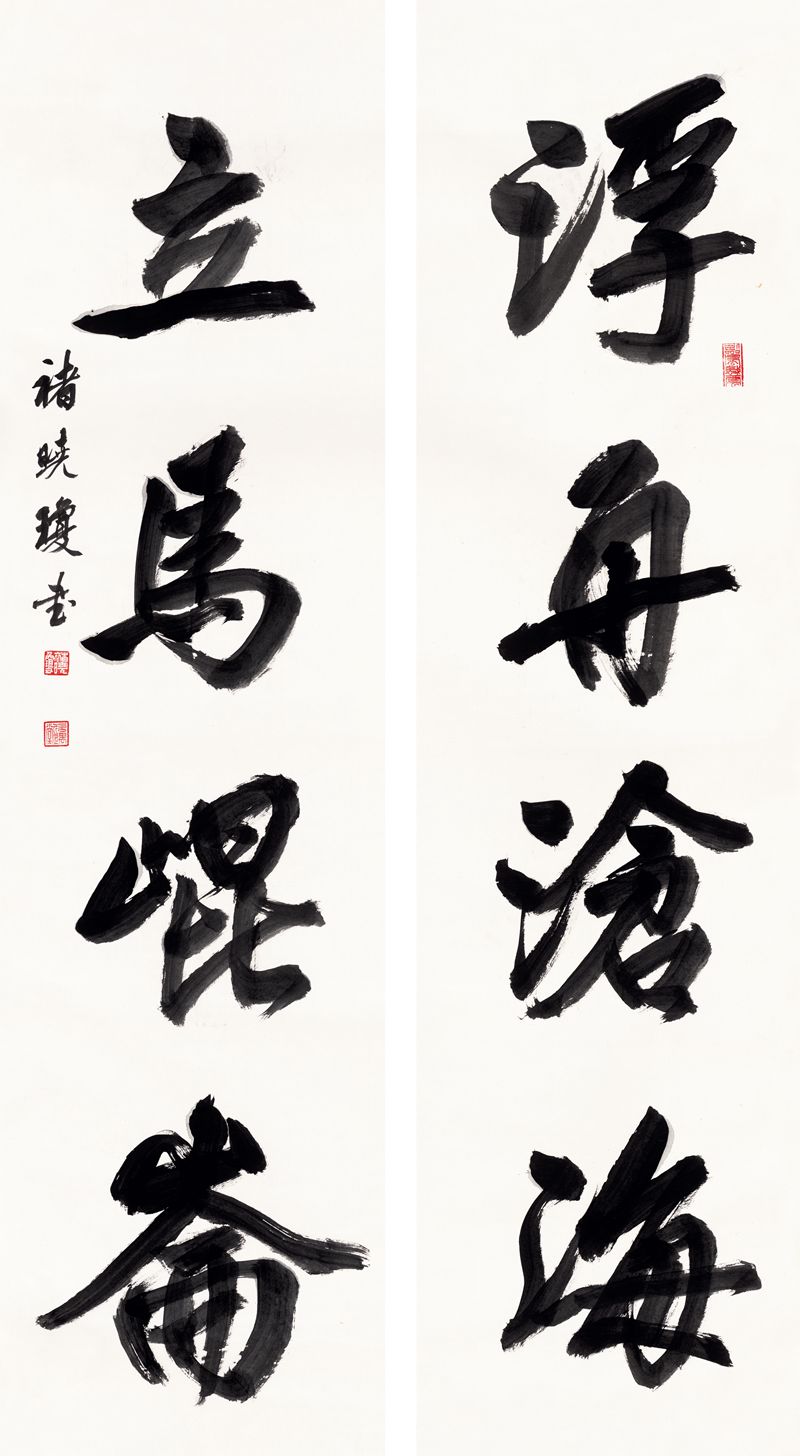 浮舟滄海
立馬崐崙
褚曉瓊書